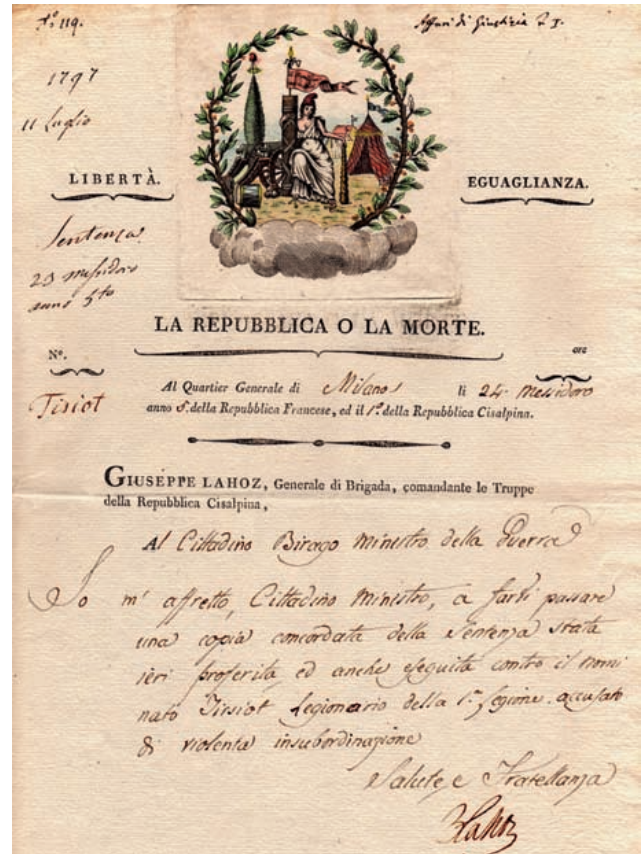 N.º 119.
Affari di Giustizia P. I.
1797
11 Luglio
LIBERTÀ.
EGUAGLIANZA.
Sentenza
23 messidoro
anno 5to
LA REPUBBLICA O LA MORTE.
Nº.
ore
Tisiot
Al Quartier Generale di Milano li 24 Messidoro
anno 5.º della Repubblica Francese, ed il 1.º della Repubblica Cisalpina.
GIUSEPPE LAHOZ, Generale di Brigada, comandante le Truppe
della Repubblica Cisalpina,
Al Cittadino Birago Ministro della Guerra
Io m'affretto, Cittadino Ministro, a farvi passare
una copia concordata della Sentenza stata
ieri proferita, ed anche eseguita contro il nomi
nato Tirsiot Legionario della 1.ª Legione accusato
di violenta insubordinazione
Salute, e Fratellanza
Lahoz